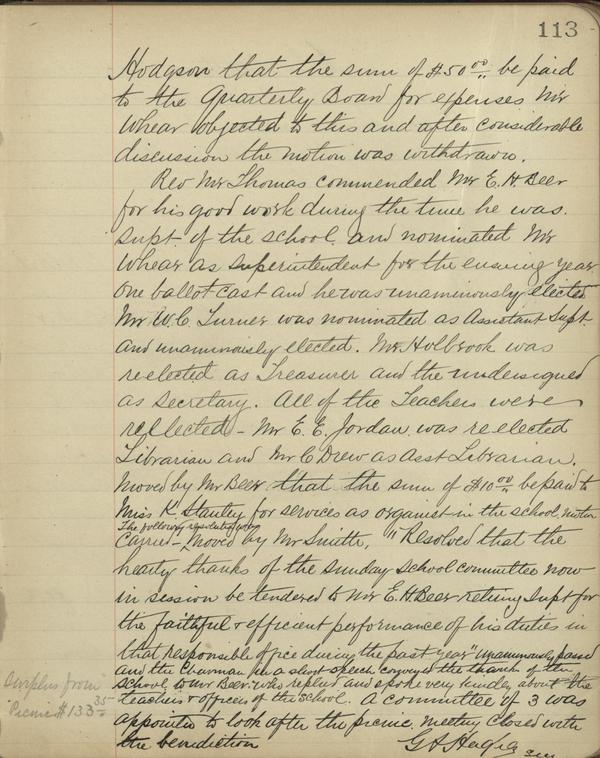 113
Hodgson that the sum of $50.00 be paid
to the Quarterly Board for expenses Mr
Whear objected to this and after considerable
discussion the motion was withdrawn.
Rev Mr Thomas commended Mr E. H. Beer
for his good work during the time he was
Supt. of the school and nominated Mr
Whear as Superintendent for the ensuing year
one ballot cast and he was unaminously elected
Mr W. C. Turner was nominated as Assistant Supt.
and unaminously elected. Mr Holbrook was
reelected as Treasurer and the undersigned
as Secretary. All of the Teachers were
reelected - Mr E. E. Jordan was reelected
Librarian and Mr C Drew as Asst Librarian.
Moved by Mr Beer that the sum of $10.00 be paid to
Miss K Stanley for services as organist in the school, motion
The following resolution was
Carried - Moved by Mr Smith, "Resolved that the
hearty thanks of the Sunday School committee now
in session be tendered to Mr E. H Beer retiring Supt for
the faithful & efficient performance of his duties in
that responsible office during the past year" unaminously passed
and the Chairman in a short speech conveyed the thanks of the
School to Mr Beer. who replied and spoke very kindly about the
teachers & officers of the school. A committee of 3 was
appointed to look after the picnic. meeting closed with
the benediction
Surplus from
Picnic $133.35